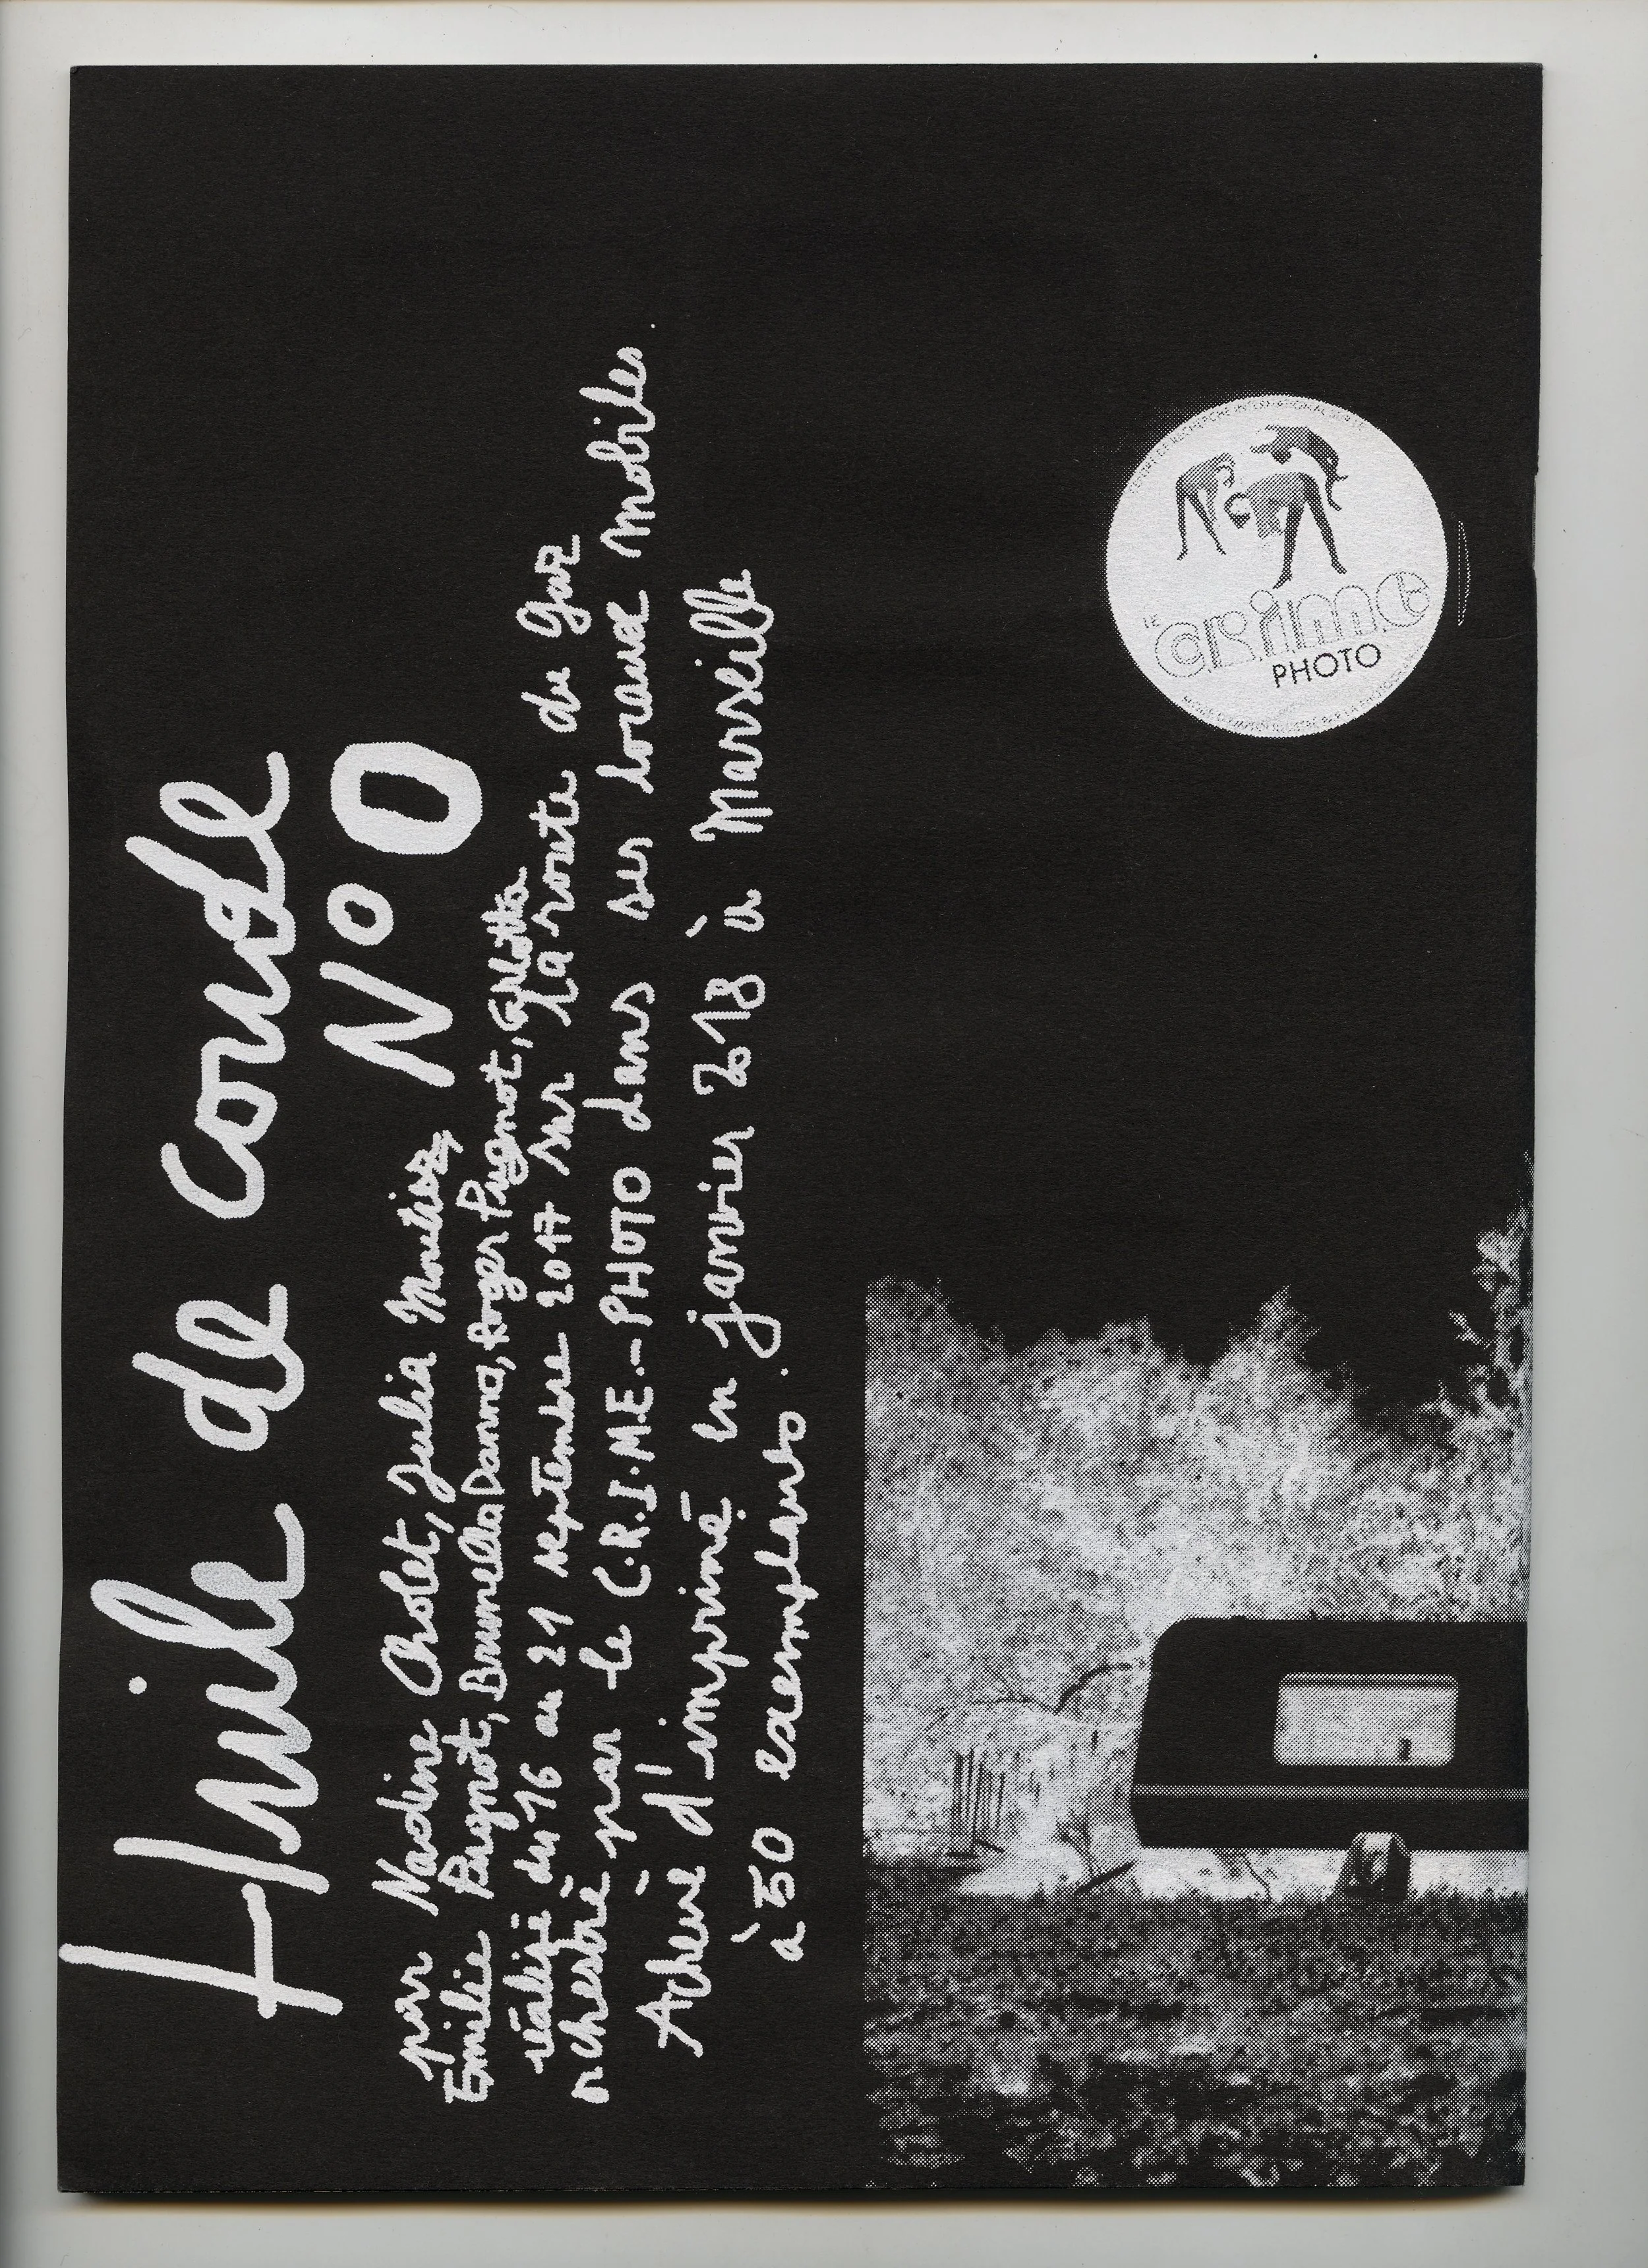 Huile de Coude
N° 0
par Nadine Cholet, Julia
Emilie Prugnot, Brunella Danna, Roger Prugnot, Carlotta
réalisé du 16 au 21 septembre 2017 sur la route du Gaz
orchestré par le C.R.I.M.E.-PHOTO dans ses locaux mobiles.
Achevé d'imprimé en janvier 2018 à Marseille
à 50 exemplaires.
LE
CRIME
PHOTO